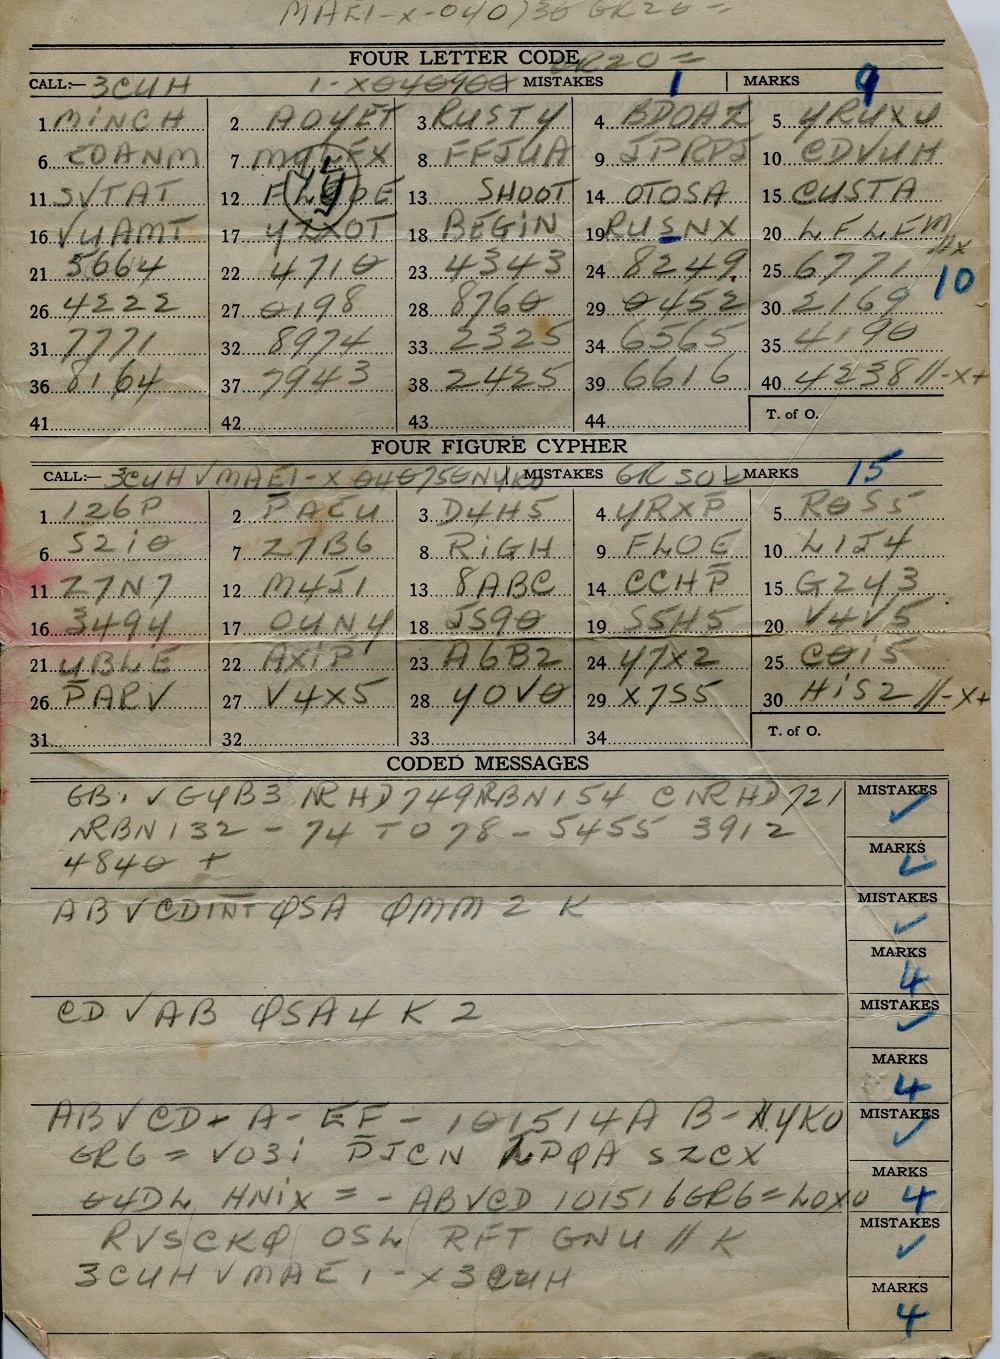 MAE1-X-040736 GR26 =
FOUR LETTER CODE GR20 =
CALL:— 3CUH 1-X040400 MISTAKES 1 MARKS 9
1. MiNCH 2 AOYET 3. RUSTY 4 BDOAZ 5. YRUXU
6 COANM 7 8 FFJUA 9 JPRPJ 10 CDVUH
11 SVTAT 12 13 SHOOT 14 OTOSA 15 CUSTA
16 VUAMT 17 YZXOT 18 BEGiN 19 RUSNX 20 LFLFM
21 5664 22 4710 23 4343 24 8249 25 6771 10
26 4222 27 0198 28 8760 29 0452 30 2169
31 7771 32 8974 33 2325 34 6565 35 4190
36 8164 37 7943 38 2425 39 6616 40 4238//-X+
41 42 43 44 T. of O.
FOUR FIGURE CYPHER
CALL:— 3CUH V MAE1-X MISTAKES GR30 MARKS 15
1 126P 2 PACU 3 D4H5 4 YRXP 5 R0S5
6 S2i0 7 Z7B6 8 RiGH 9 FLOE 10 L1J4
11 Z7N7 12 M4J1 13 8ABC 14 CCHP 15 G2Y3
16 3494 17 OUNY 18 JS90 19 S5H5 20 V4V5
21 YBLE 22 AXiP 23 A6B2 24 Y7X2 25 C0i5
26 PARV 27 V4X5 28 YOV0 29 X7S5 30 HiS2 //-X+
31 32 33 34 T. of O.
CODED MESSAGES
GB. V G4B3 NRHD749NRBN154 CNRHD721 MISTAKES ✓
NRBN132 - 74 TO 78 - 5455 3912
4840 + MARKS
ABVCDINT QSA QMM 2 K MISTAKES ✓
MARKS 4
CD VAB QSA4 K 2 MISTAKES ✓
MARKS 4
ABVCD - A - EF - 101514A B - NYKO MISTAKES ✓
GR6 = VO3i PJCN LPQA SZCX
04DL HNiX = - ABVCD 101516GR6=LOXO MARKS 4
RVSCKQ OSL RFT GNU // K MISTAKES ✓
3CUH V MAE1-X3CUH
MARKS 4